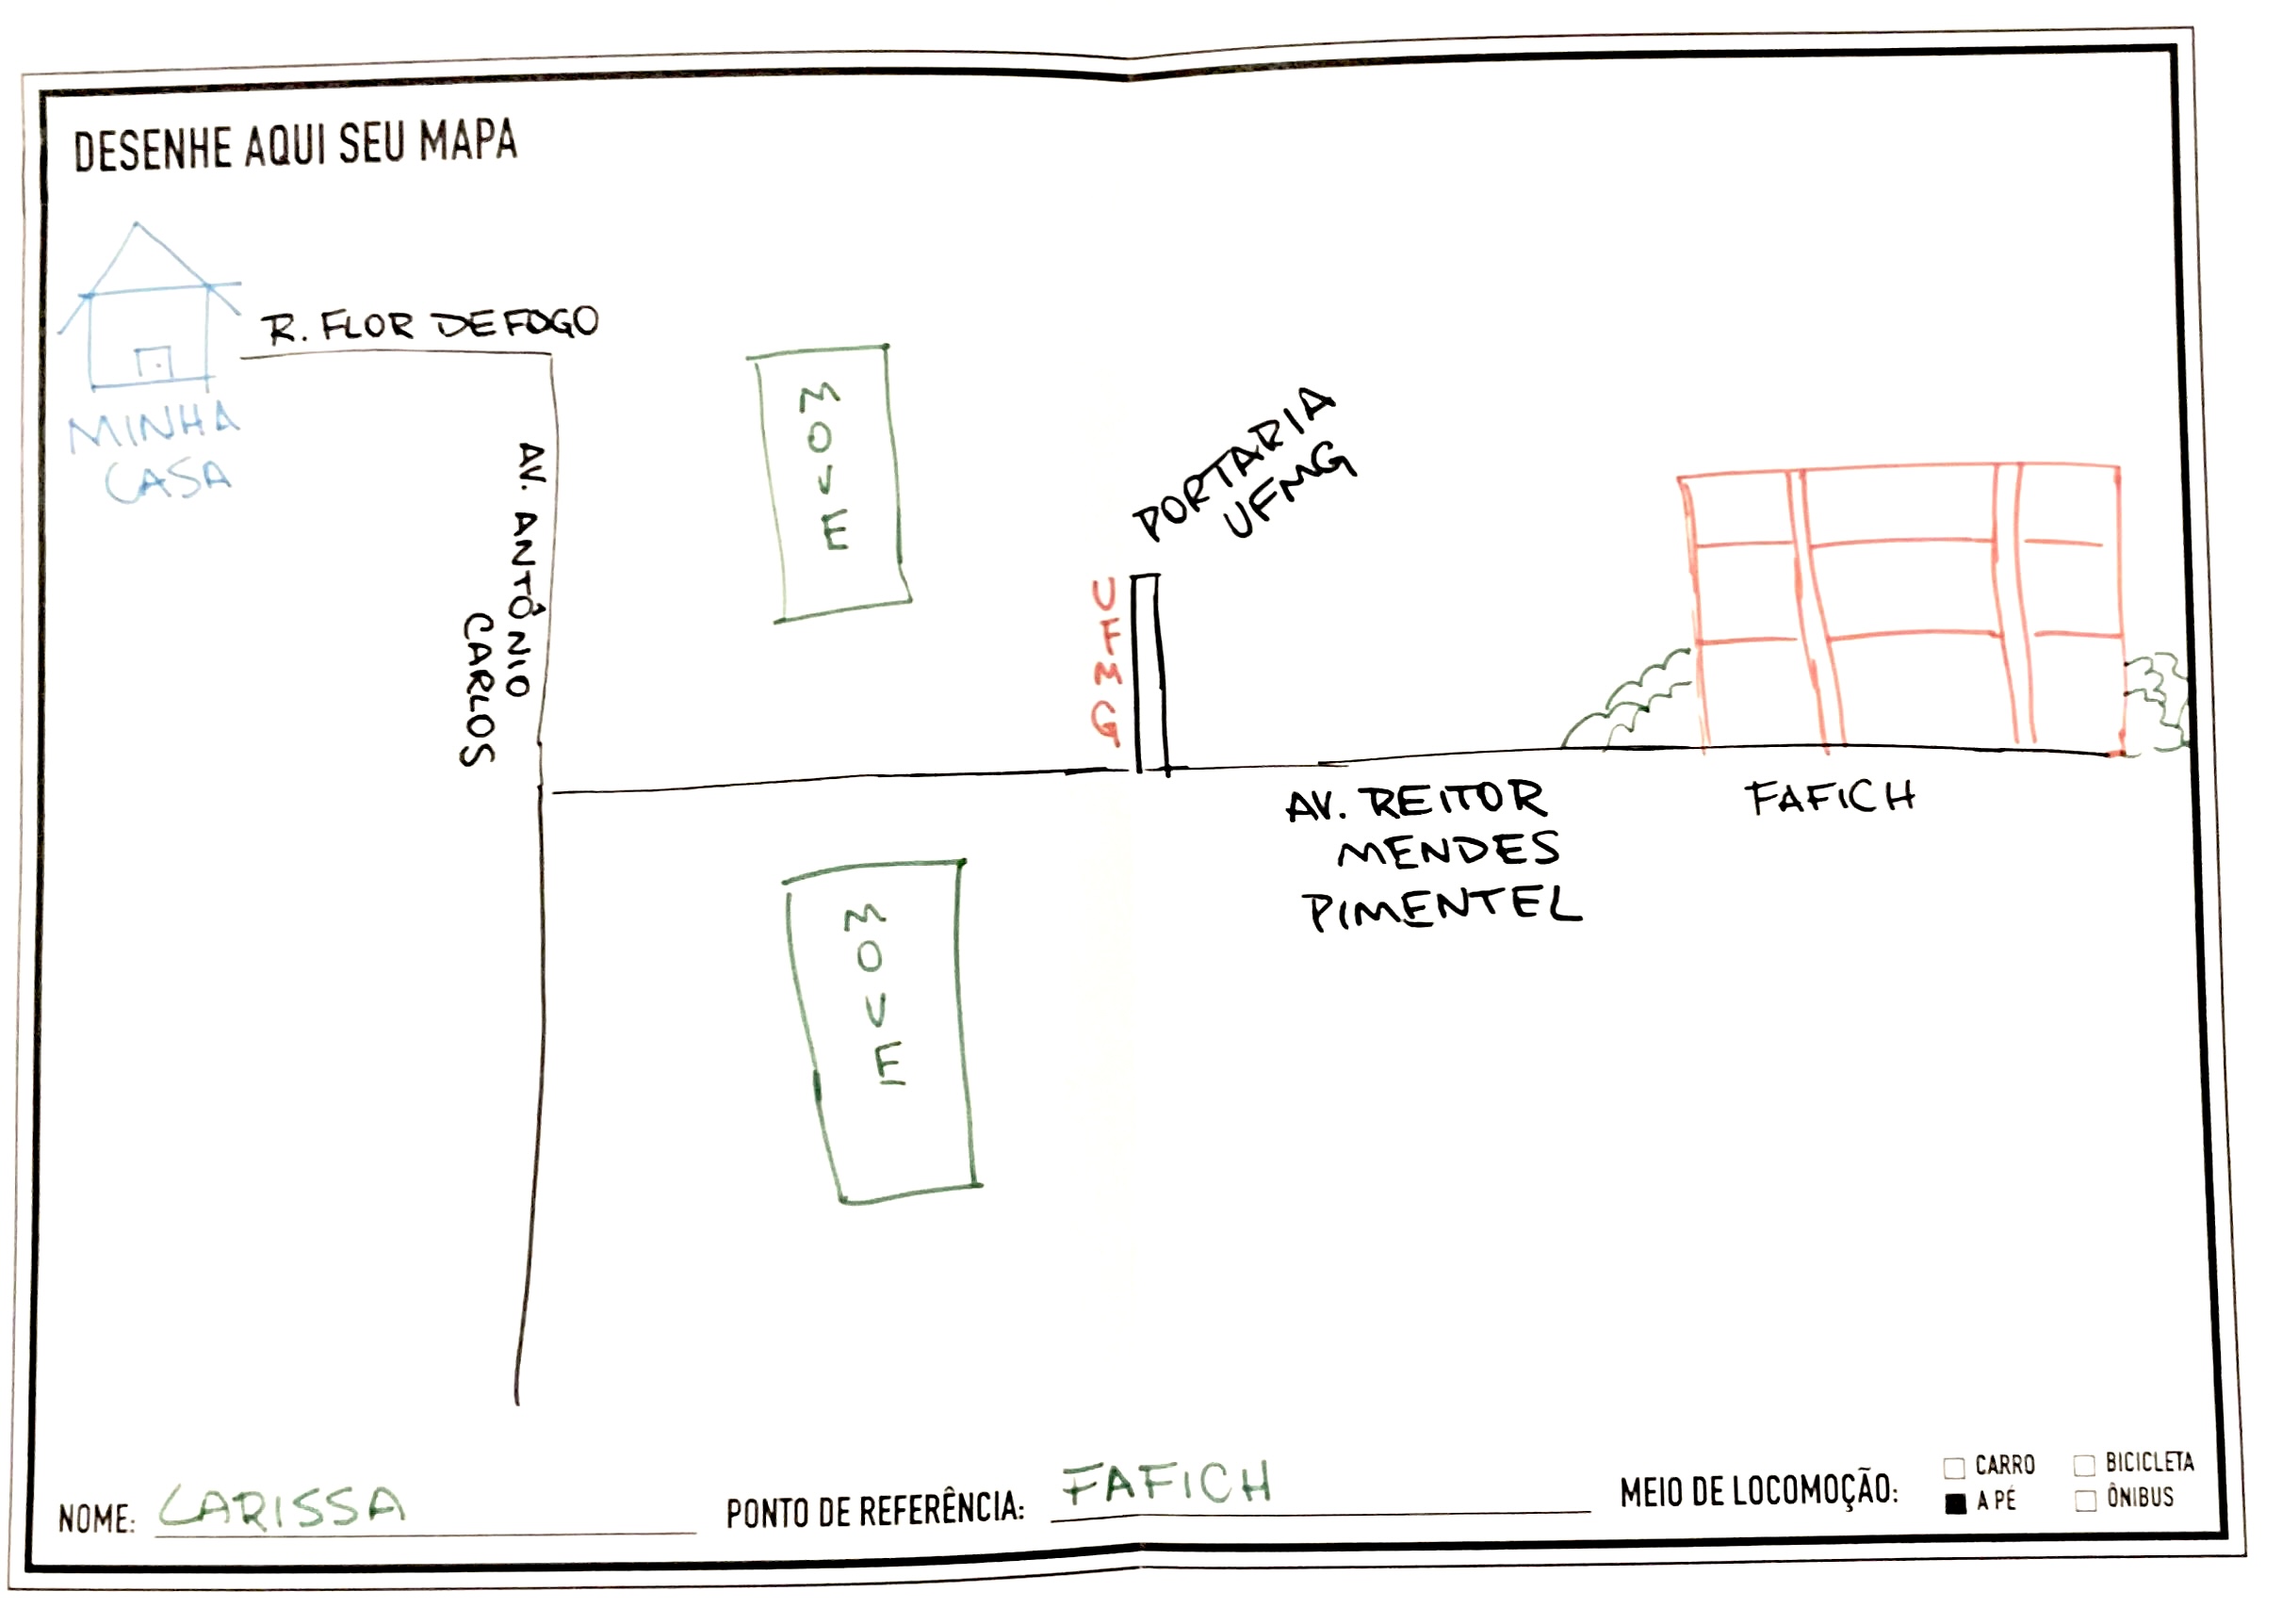 DESENHE AQUI SEU MAPA
R. FLOR DE FOGO
MINHA
CASA
AV. ANTÔNIO
CARLOS
MOVE
PORTARIA
UFMG
UFMG
AV. REITOR
MENDES
PIMENTEL
FAFICH
MOVE
NOME: LARISSA
PONTO DE REFERÊNCIA: FAFICH
MEIO DE LOCOMOÇÃO:
CARRO
BICICLETA
A PÉ
ÔNIBUS